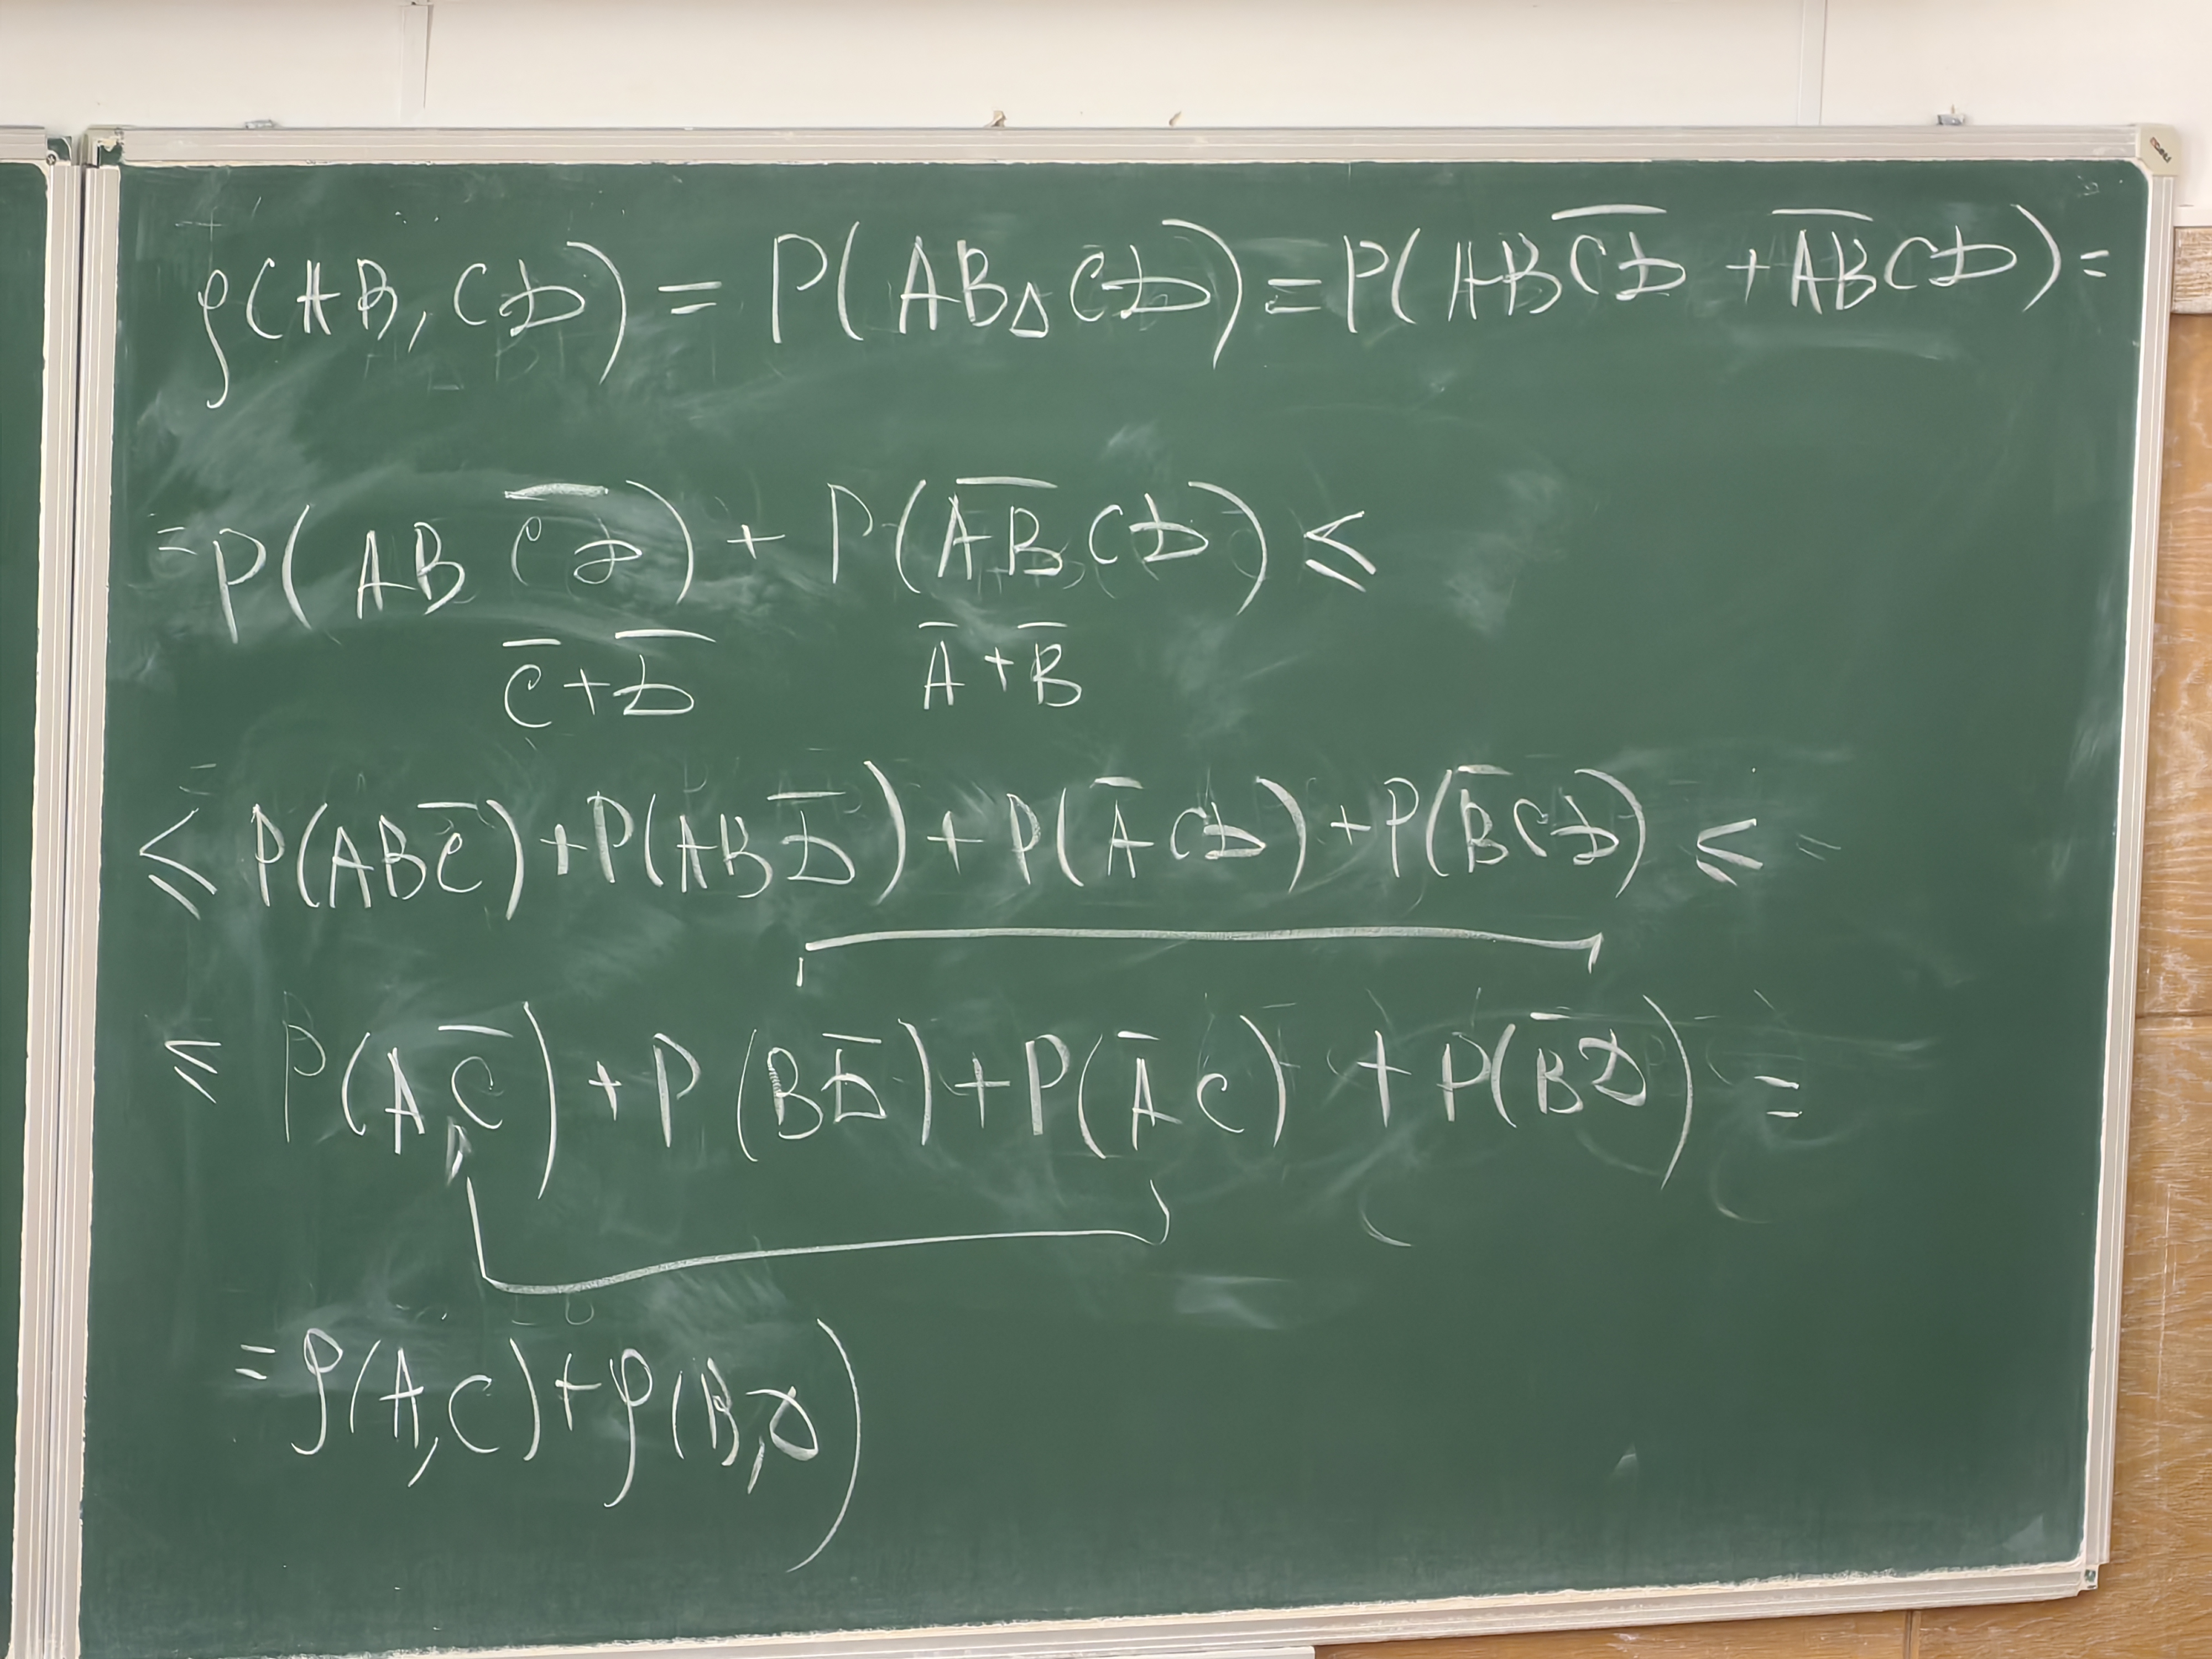 ρ(AB, CD) = P(AB △ CD) = P(AB\overline{CD} + \overline{AB}CD) =
= P(AB \overline{CD}) + P(\overline{AB}CD) ≤
\overline{C} + \overline{D} \overline{A} + \overline{B}
≤ P(AB\overline{C}) + P(AB\overline{D}) + P(\overline{A}CD) + P(\overline{B}CD) ≤
≤ P(A\overline{C}) + P(B\overline{D}) + P(\overline{A}C) + P(\overline{B}D) =
= ρ(A,C) + ρ(B,D)